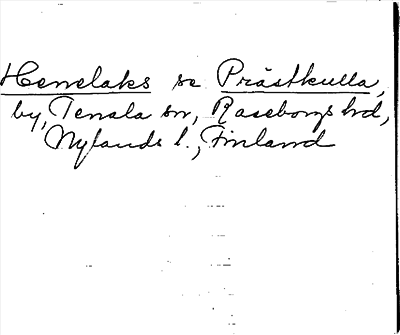 Hennelaks se Prästkulla,
by, Tenala sn, Raseborgs hrd,
Nylands l., Finland